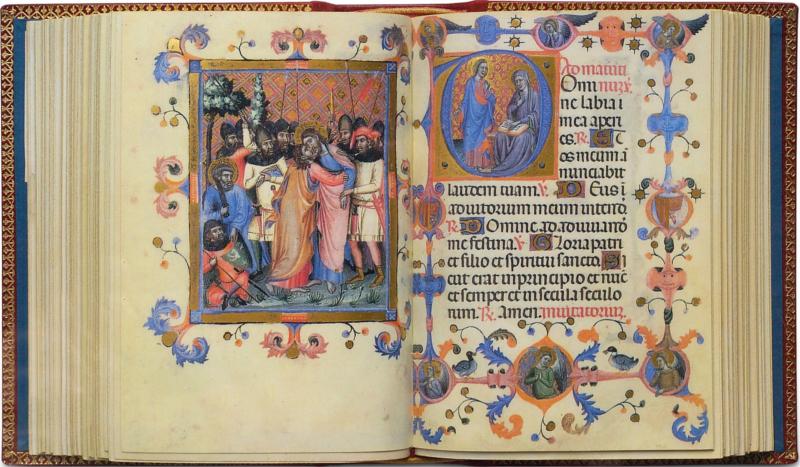 Ad matuti
Omi nun℣.
ne labia
mea aperi
es. ℟. Et
os meum a
nunciabit
laudem tuam. ℣. Deus i
adiutorium meum intend
℟. Domine ad adiuvand
me festina. ℣. Gloria patri
et filio et spiritui sancto. Si
cut erat in principio et nuc
et semper et in secula seculo
rum. ℟. amen. Invitatorium.